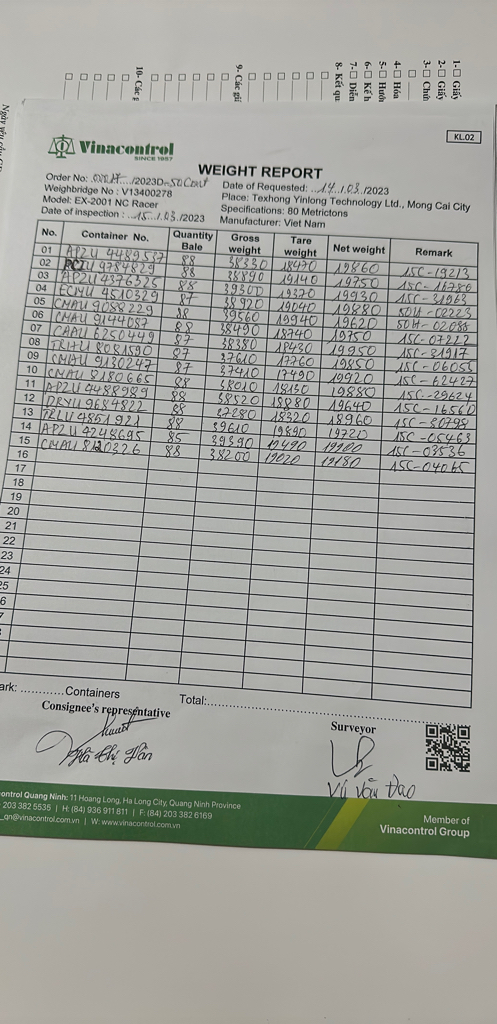 1- ☐ Giấy
2- ☐ Giấy
4- ☐ Hóa
7- ☐ Diễn
8- Kết qu
9- Các gi
10- Các g
KL.02
Vinacontrol
SINCE 1957
WEIGHT REPORT
Order No: /2023D-50Cont
Date of Requested: 14/03/2023
Weighbridge No : V13400278
Place: Texhong Yinlong Technology Ltd., Mong Cai City
Model: EX-2001 NC Racer
Specifications: 80 Metrictons
Date of inspection : 15/03/2023
Manufacturer: Viet Nam
No. Container No. Quantity Bale Gross weight Tare weight Net weight Remark
01 APZU 4489537 88 38330 18470 19860 15C-19213
02 PCIU 9784829 88 38890 19140 19750 15C-16786
03 APZU 4376325 88 39300 19370 19930 15C-31963
04 ECMU 4510329 87 38920 19040 19880 50H-02223
05 CMAU 9088229 88 39560 19940 19620 50H-02088
06 CMAU 9144057 88 38490 18740 19750 15C-07222
07 CAAU 6250449 87 38380 18430 19950 15C-31917
08 TRHU 8081590 87 37610 17760 19850 15C-06055
09 CMAU 9130247 87 37410 17490 19920 15C-62427
10 CMAU 8180665 88 38010 18130 19880 15C-29624
11 APZU 4488989 88 38520 18880 19640 15C-16560
12 DRYU 9684822 88 37280 18320 18960 15C-30798
13 TRLU 4851921 88 39610 19890 19720 15C-05463
14 APZU 4748695 85 39390 19490 19900 15C-03536
15 CMAU 8120326 88 38200 19020 19180 15C-04065
16
17
18
19
20
21
22
23
24
25
6
7
ark: ............Containers
Total:
Consignee's representative
Surveyor
Vũ Văn Đạo
ontrol Quang Ninh: 11 Hoang Long, Ha Long City, Quang Ninh Province
203 382 5535 | H: (84) 936 911 811 | F: (84) 203 382 6169
_qn@vinacontrol.com.vn | W: www.vinacontrol.com.vn
Member of
Vinacontrol Group